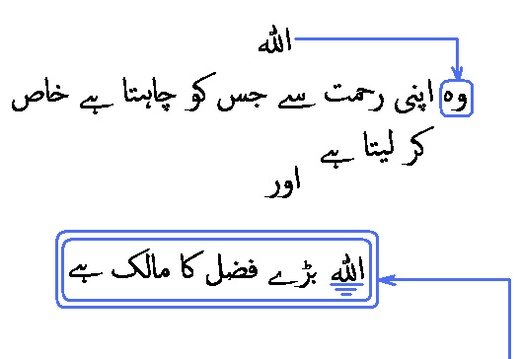 اللہ
وہ اپنی رحمت سے جس کو چاہتا ہے خاص
کر لیتا ہے
اور
اللہ بڑے فضل کا مالک ہے